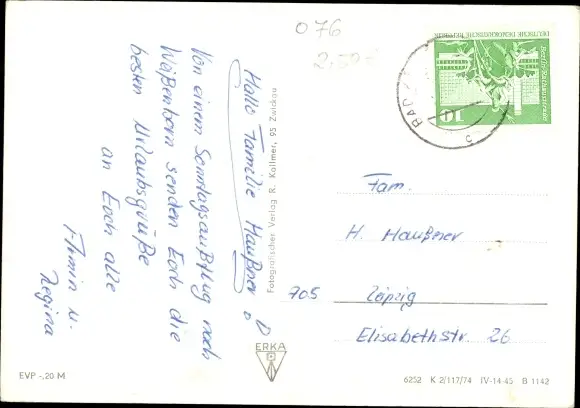 076
2,50 €
Hallo Familie Haußner!
Von einem Sonntagsausflug nach
Weißenborn senden Euch die
besten Urlaubsgrüße
an Euch alle
Armin u.
Regina
Fotografischer Verlag R. Kallmer, 95 Zwickau
ERKA
EVP -,20 M
DEUTSCHE DEMOKRATISCHE REPUBLIK
10
BAD
Fam.
H. Haußner
705 Leipzig
Elisabethstr. 26
6252 K 2/117/74 IV-14-45 B 1142